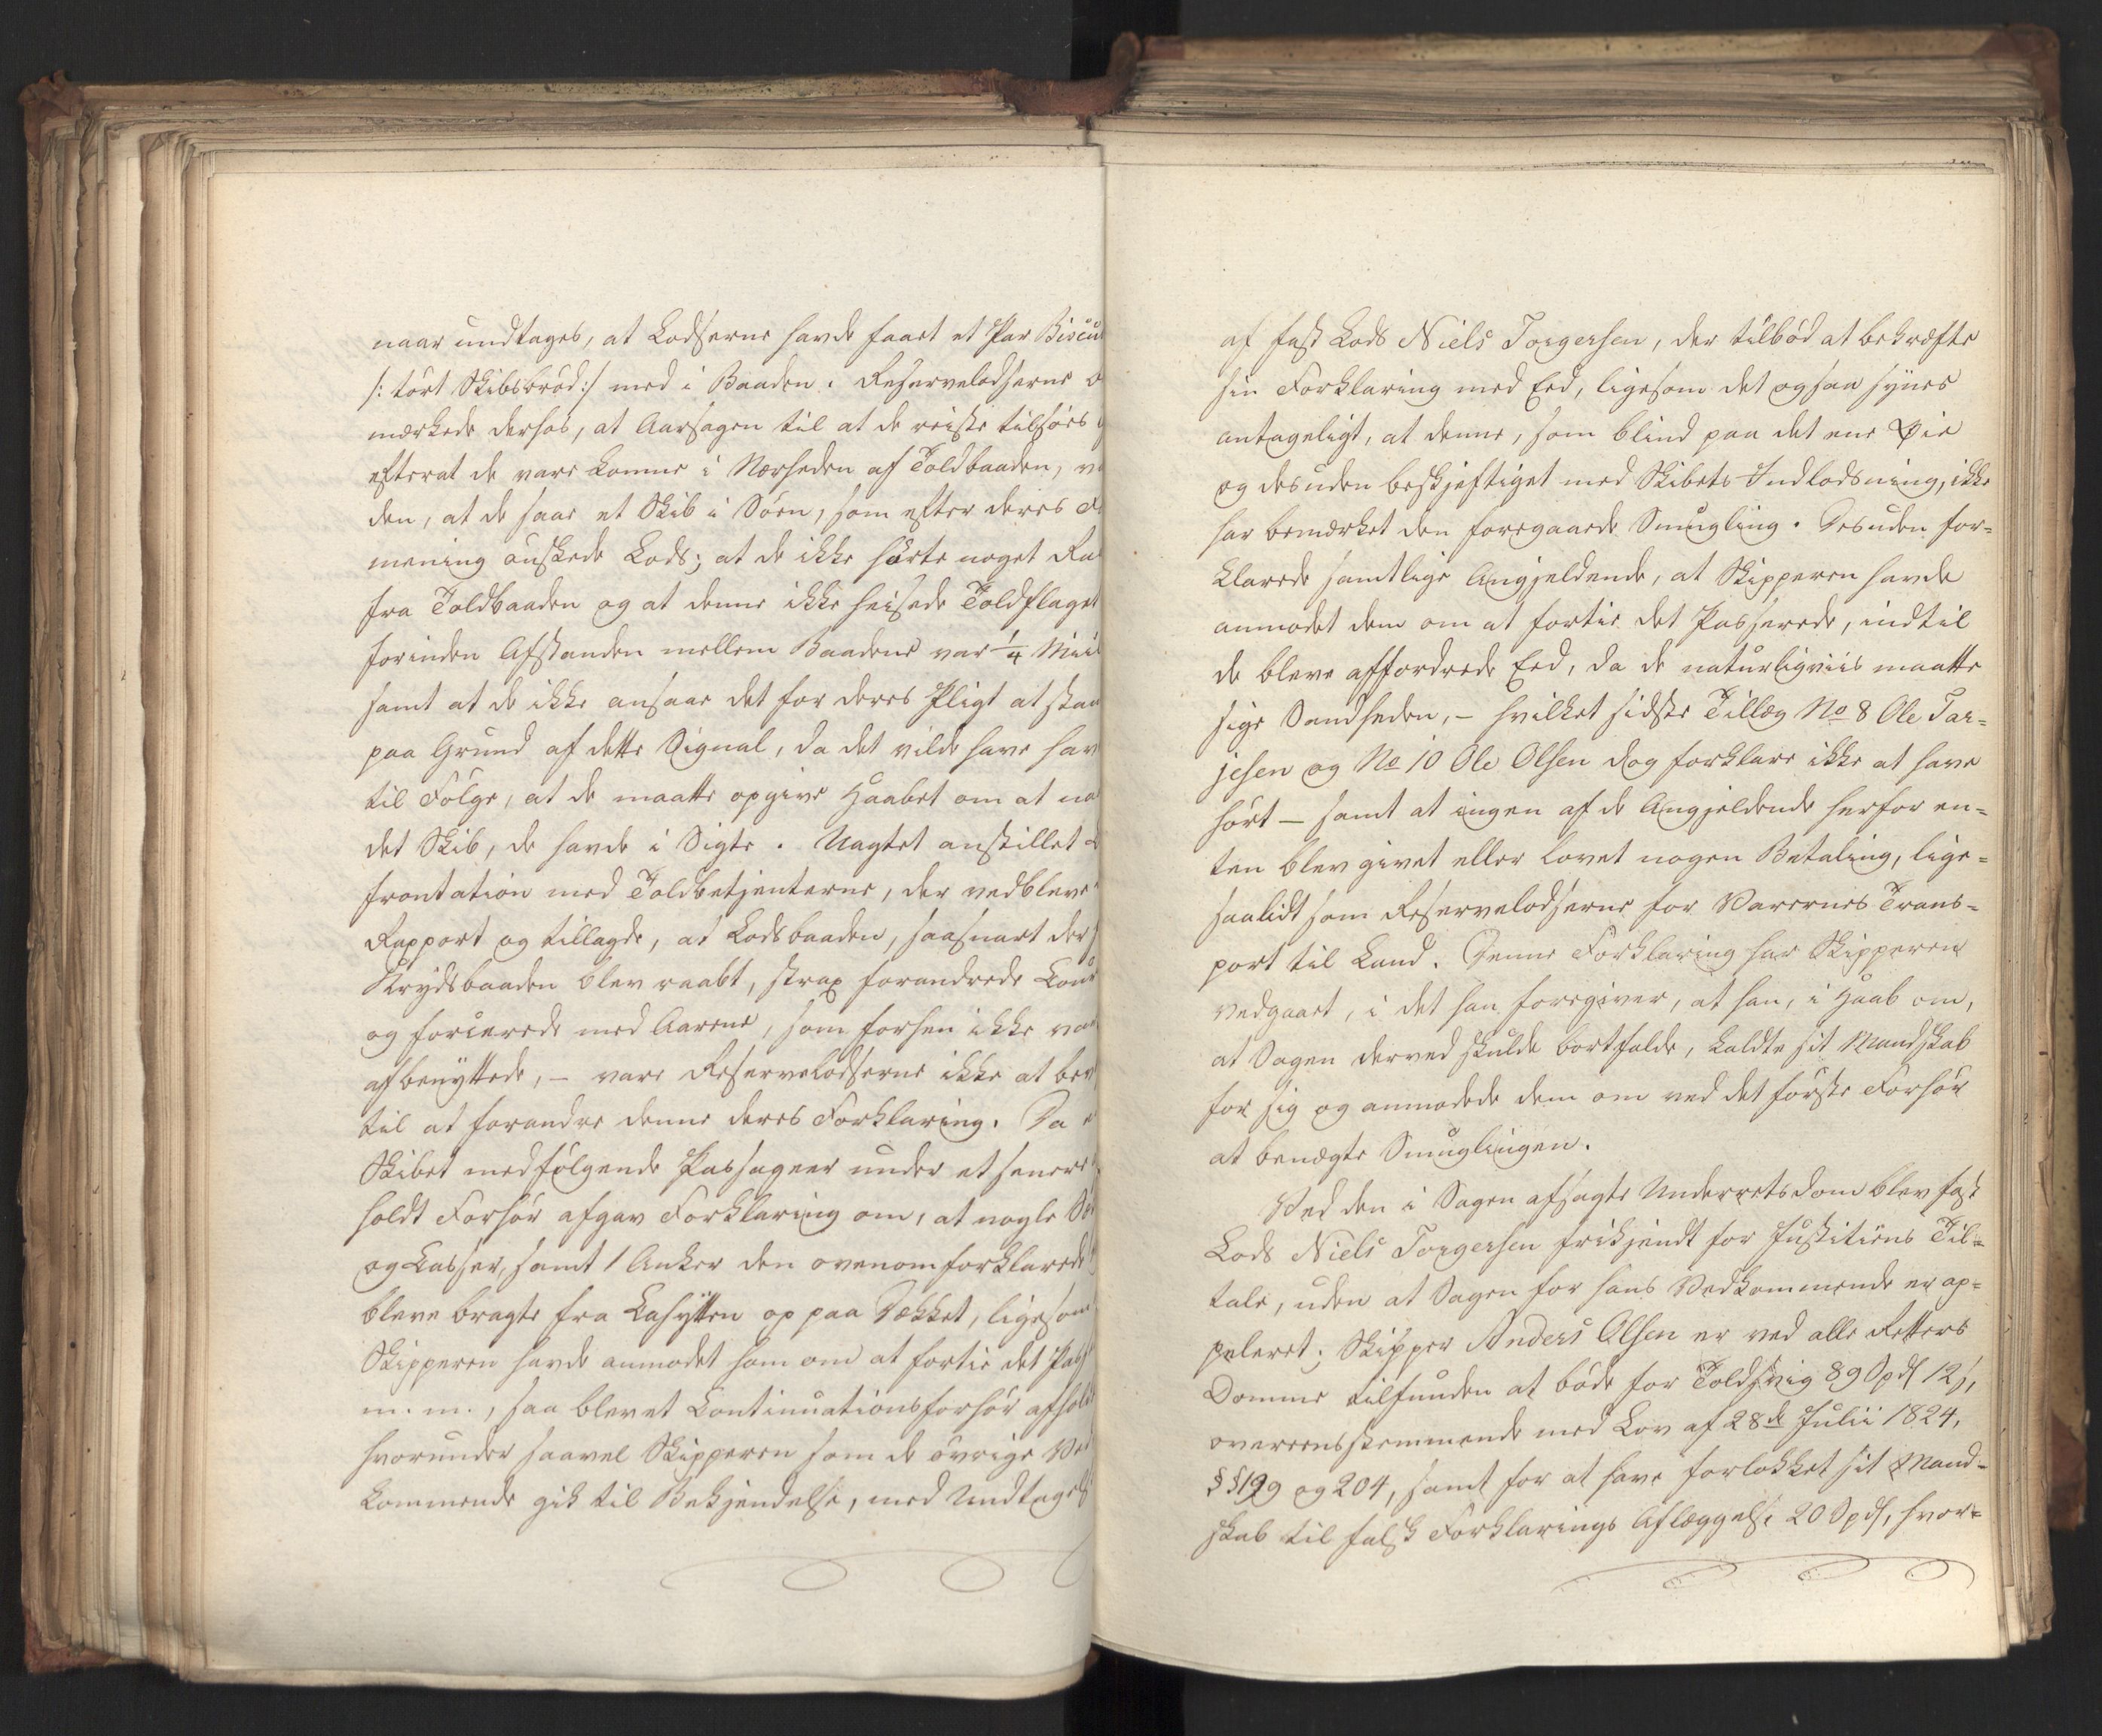 naar undtages, at Lodserne havde faaet et Par Biscui
/: tört Skibsbröd:/ med i Baaden. Reservelodserne
mærkede derhos, at Aarsagen til at de reiste tilsöes
efterat de vare komne i Nærheden af Toldbaaden, va
den, at de saae et Skib i Söen, som efter deres
mening önskede Lods; at de ikke hörte noget Ra
fra Toldbaaden og at denne ikke heisede Toldflaget
forinden Afstanden mellem Baadene var 1/4 Miil
samt at de ikke ansaae det for deres Pligt at stan
paa Grund af dette Signal, da det vilde have hav
til Fölge, at de maatte opgive Haabet om at na
det Skib, de havde i Sigte. Uagtet anstillet
frontation med Toldbetjenterne, der vedbleve
Rapport og tillagde, at Lodsbaaden, saasnart der
Krydsbaaden blev raabt, strax forandrede Cou
og forcerede med Aarene, som forhen ikke var
afbenyttede, – vare Reservelodserne ikke at bev
til at forandre denne deres Forklaring. Da
Skibet medfölgende Passageer under et senere
holdt Forhör afgav Forklaring om, at nogle
og Casser, samt 1 Anker den ovenomforklarede
bleve bragte fra Cahytten op paa Dækket, ligesom
Skipperen havde anmodet ham om at fortie det Pass
m. m., saa blev et Continuationsforhör afhold
hvorunder saavel Skipperen som de övrige Ved
kommende gik til Bekjendelse, med Undtagelse
af fast Lods Niels Torgersen, der tilböd at bekræfte
sin Forklaring med Eed, ligesom det ogsaa synes
antageligt, at denne, som blind paa det ene Øie
og desuden beskjeftiget med Skibets Indlodsning, ikke
har bemærket den foregaaede Smugling. Desuden for=
klarede samtlige Angjeldende, at Skipperen havde
anmodet dem om at fortie det Passerede, indtil
de bleve affordrede Eed, da de naturligviis maatte
sige Sandheden, – hvilket sidste Tillæg No 8 Ole Tar=
jesen og No 10 Ole Olsen dog forklare ikke at have
hört – samt at ingen af de Angjeldende herfor en=
ten blev givet eller lovet nogen Betaling, lige=
saalidt som Reservelodserne for Varernes Trans=
port til Land. Denne Forklaring har Skipperen
vedgaaet, i det han foregiver, at han, i Haab om,
at Sagen derved skulde bortfalde, kaldte sit Mandskab
for sig og anmodede dem om ved det förste Forhör
at benægte Smuglingen.
Ved den i Sagen afsagte Underretsdom blev fast
Lods Niels Torgersen frikjendt for Justitiens Til=
tale, uden at Sagen for hans Vedkommende er ap=
peleret; Skipper Anders Olsen er ved alle Retters
Domme tilfunden at böde for Toldsvig 89 Spd 12 s,
overeensstemmende med Lov af 28de Julii 1824,
§§ 199 og 204, samt for at have forlokket sit Mand=
skab til falsk Forklarings Aflæggelse 20 Spd, hvor=